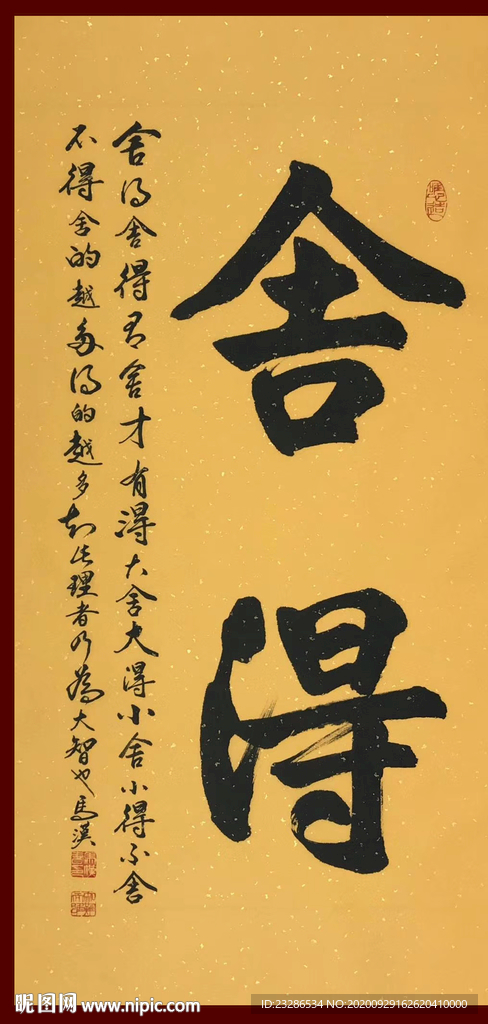 舍得
舍得舍得有舍才有得大舍大得小舍小得不舍
不得舍的越多得的越多知此理者乃為大智也馬漢
昵图网 www.nipic.com
ID:23286534 NO:20200929162620410000